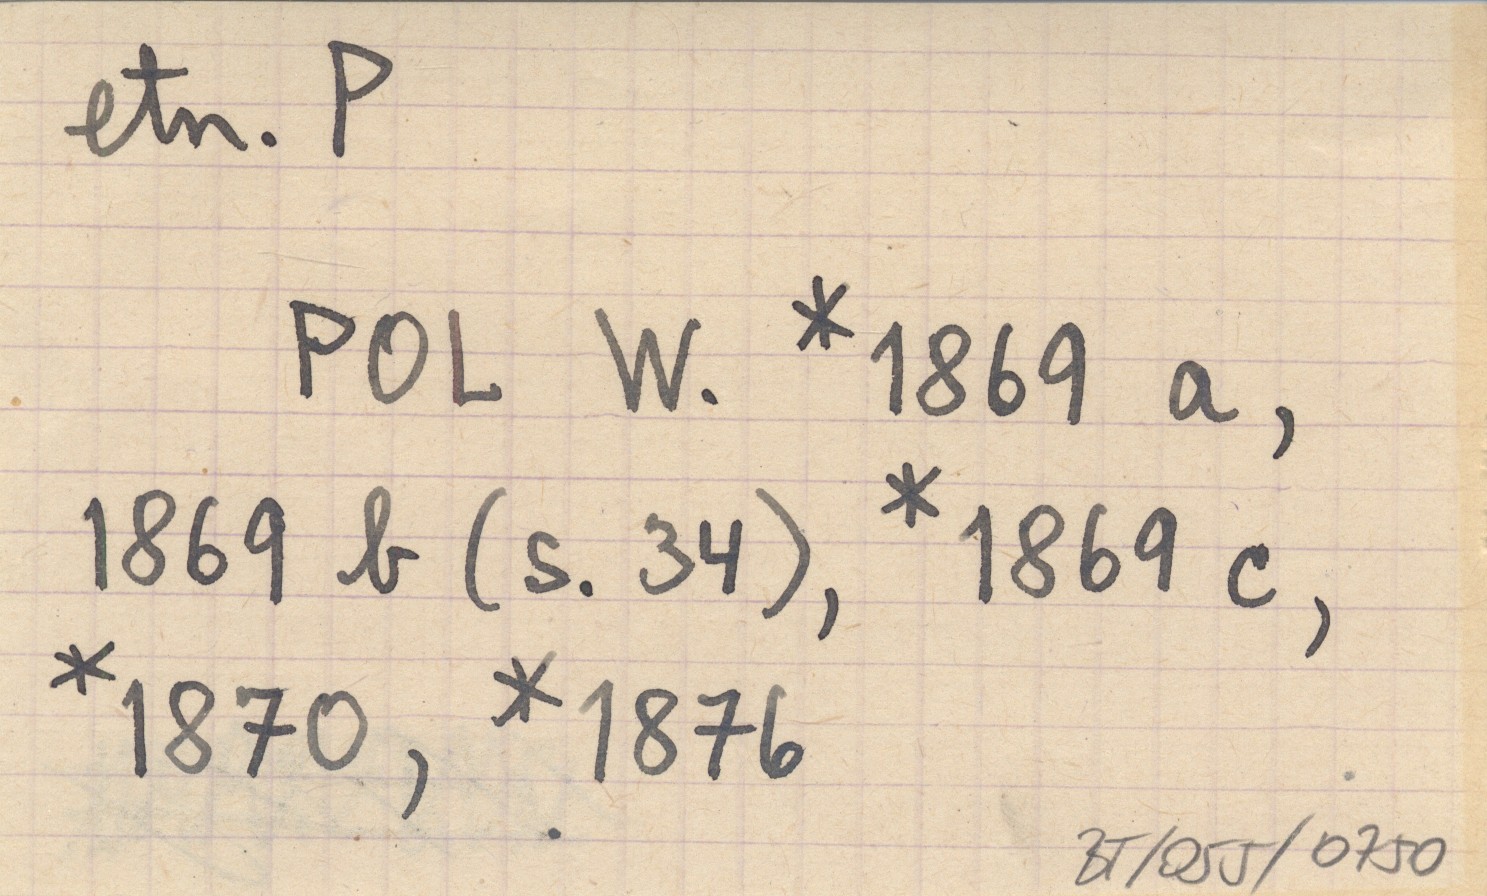 etn. P
POL W. *1869 a,
1869 b (s. 34), *1869 c,
*1870, *1876
BT/055/0750